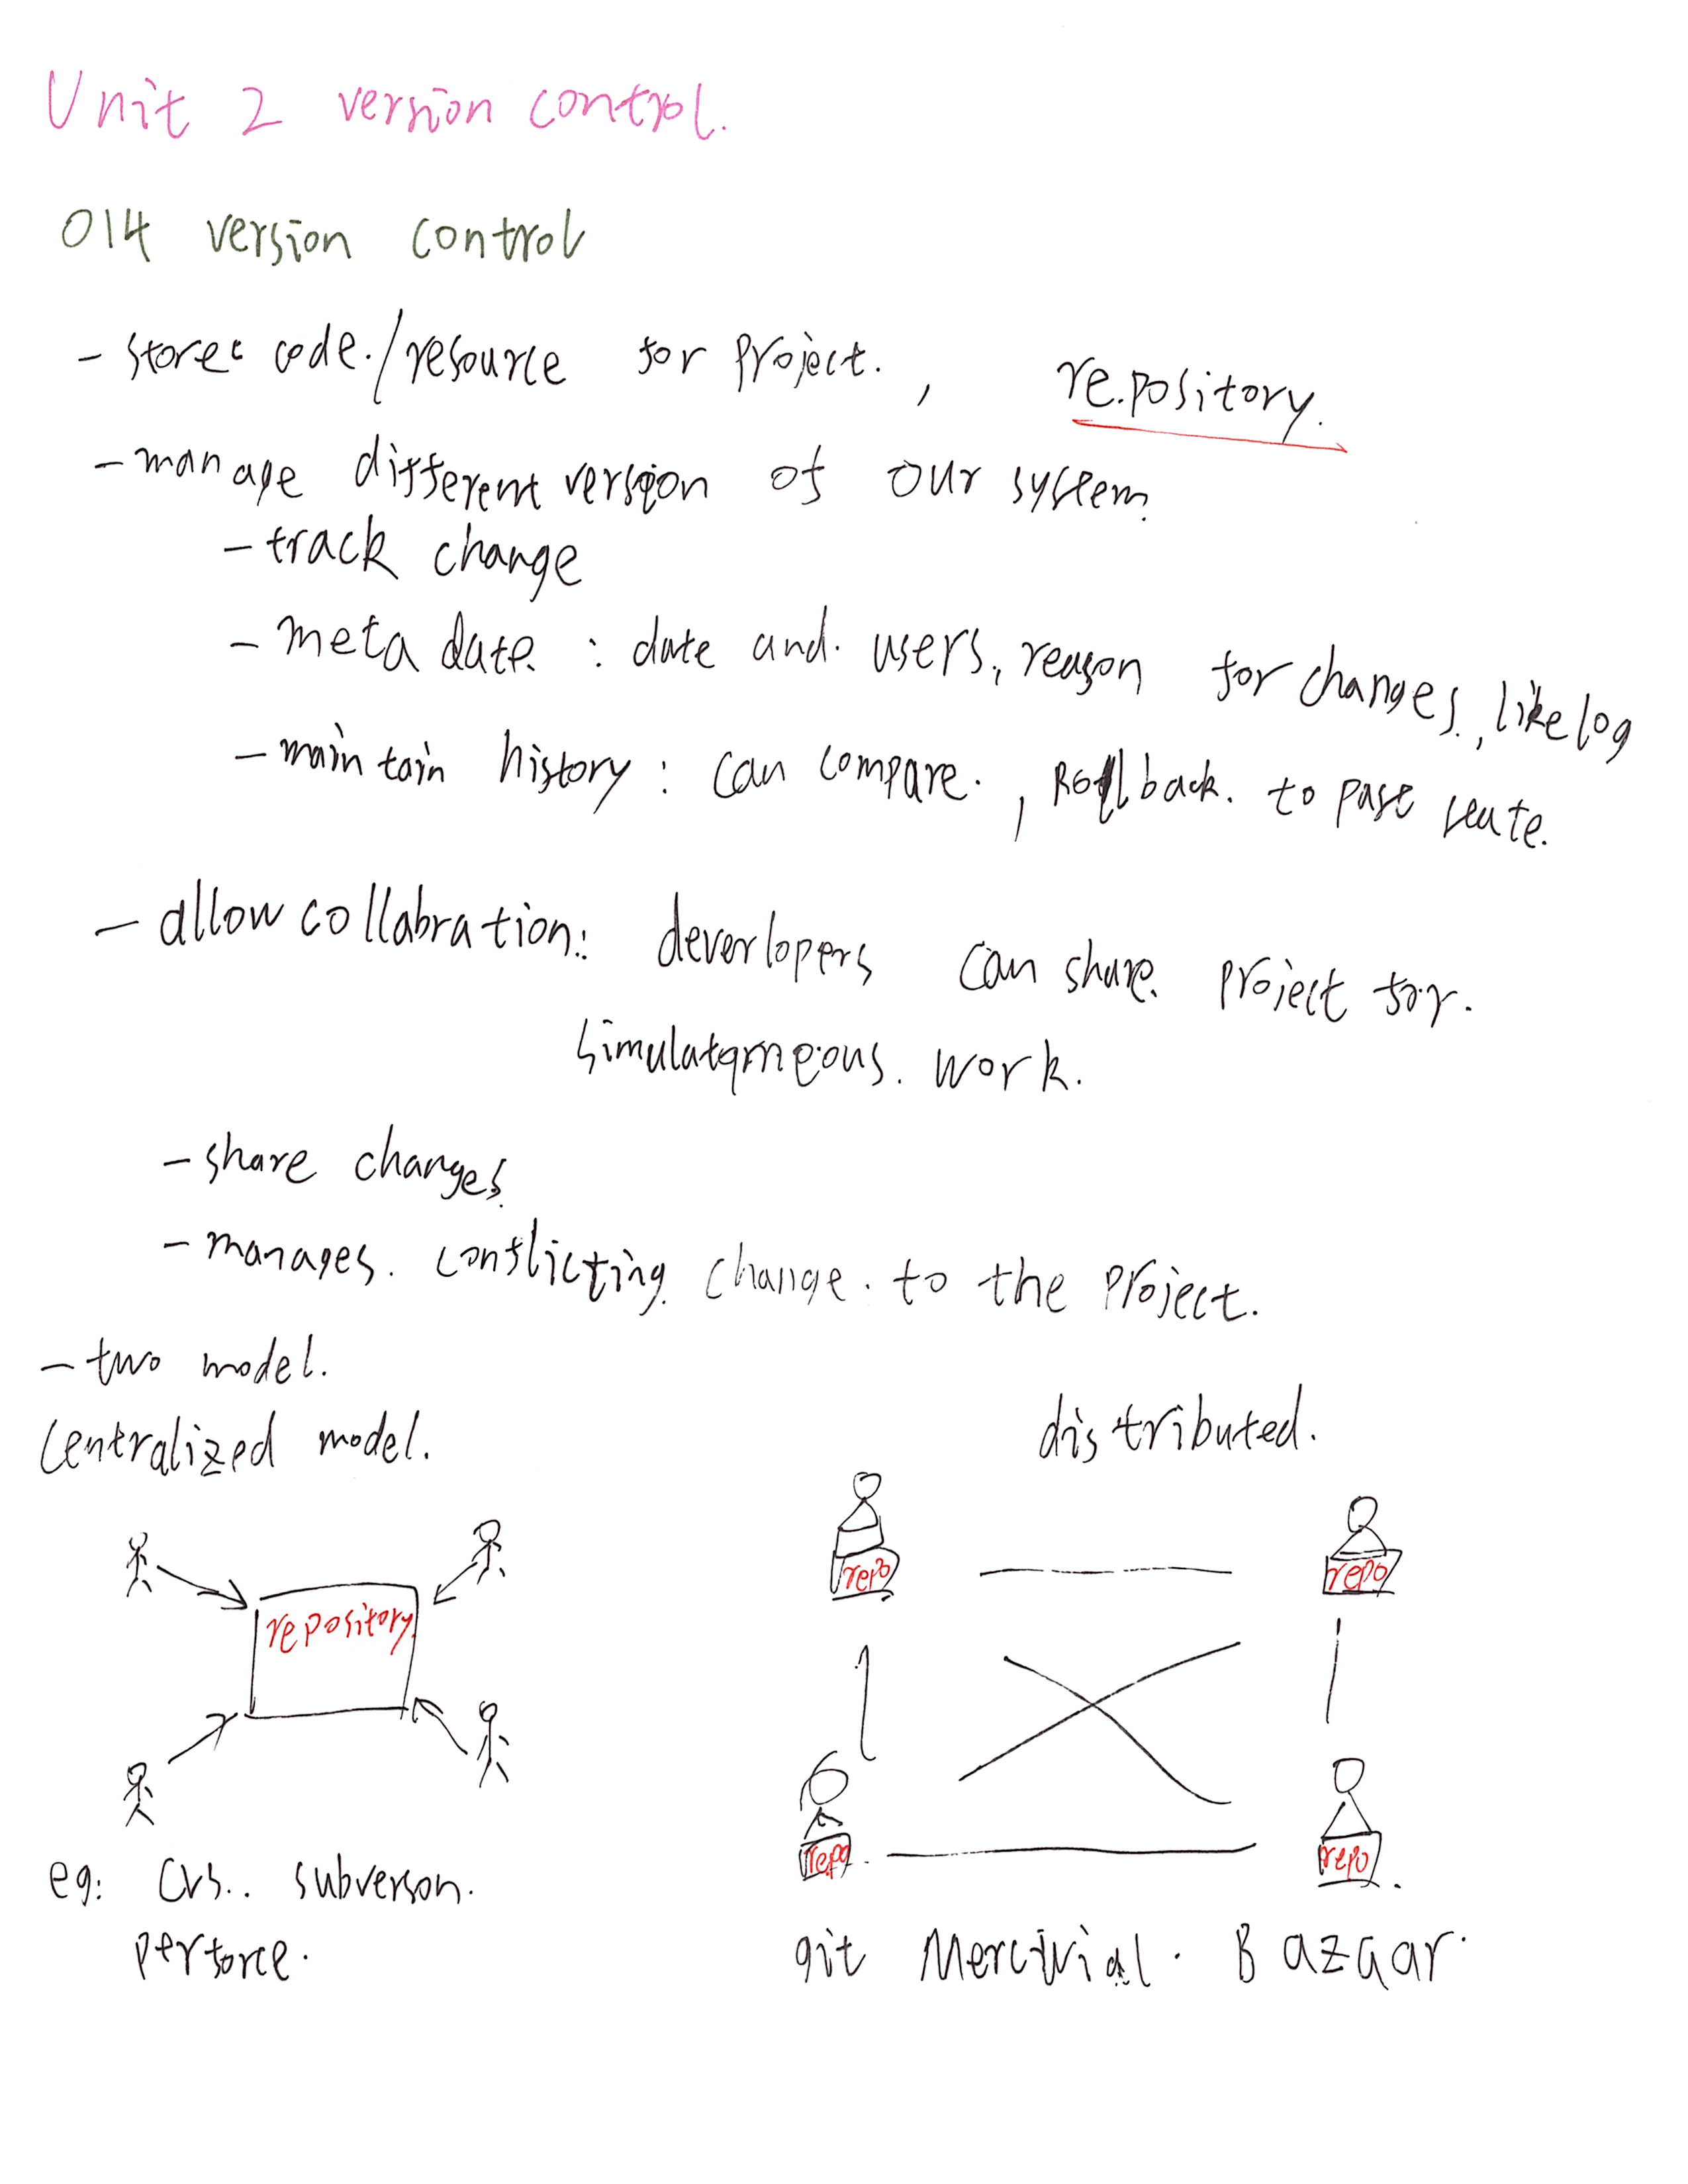 Unit 2 version control.
014 version control
- store code./resource for project. , re.pository.
- manage different version of our system.
- track change
- meta date : date and. users., reason for changes., like log
- maintain history : can compare. , Rollback. to past state.
- allow collabration: deverlopers can share. project for.
simulatqmeous. work.
- share changes.
- manages. conflicting. change. to the project.
- two model.
centralized model. distributed.
repo repo
repository.
repo. repo
eg: CVS.. subverson.
perforce. git Mercivial. Bazaar.